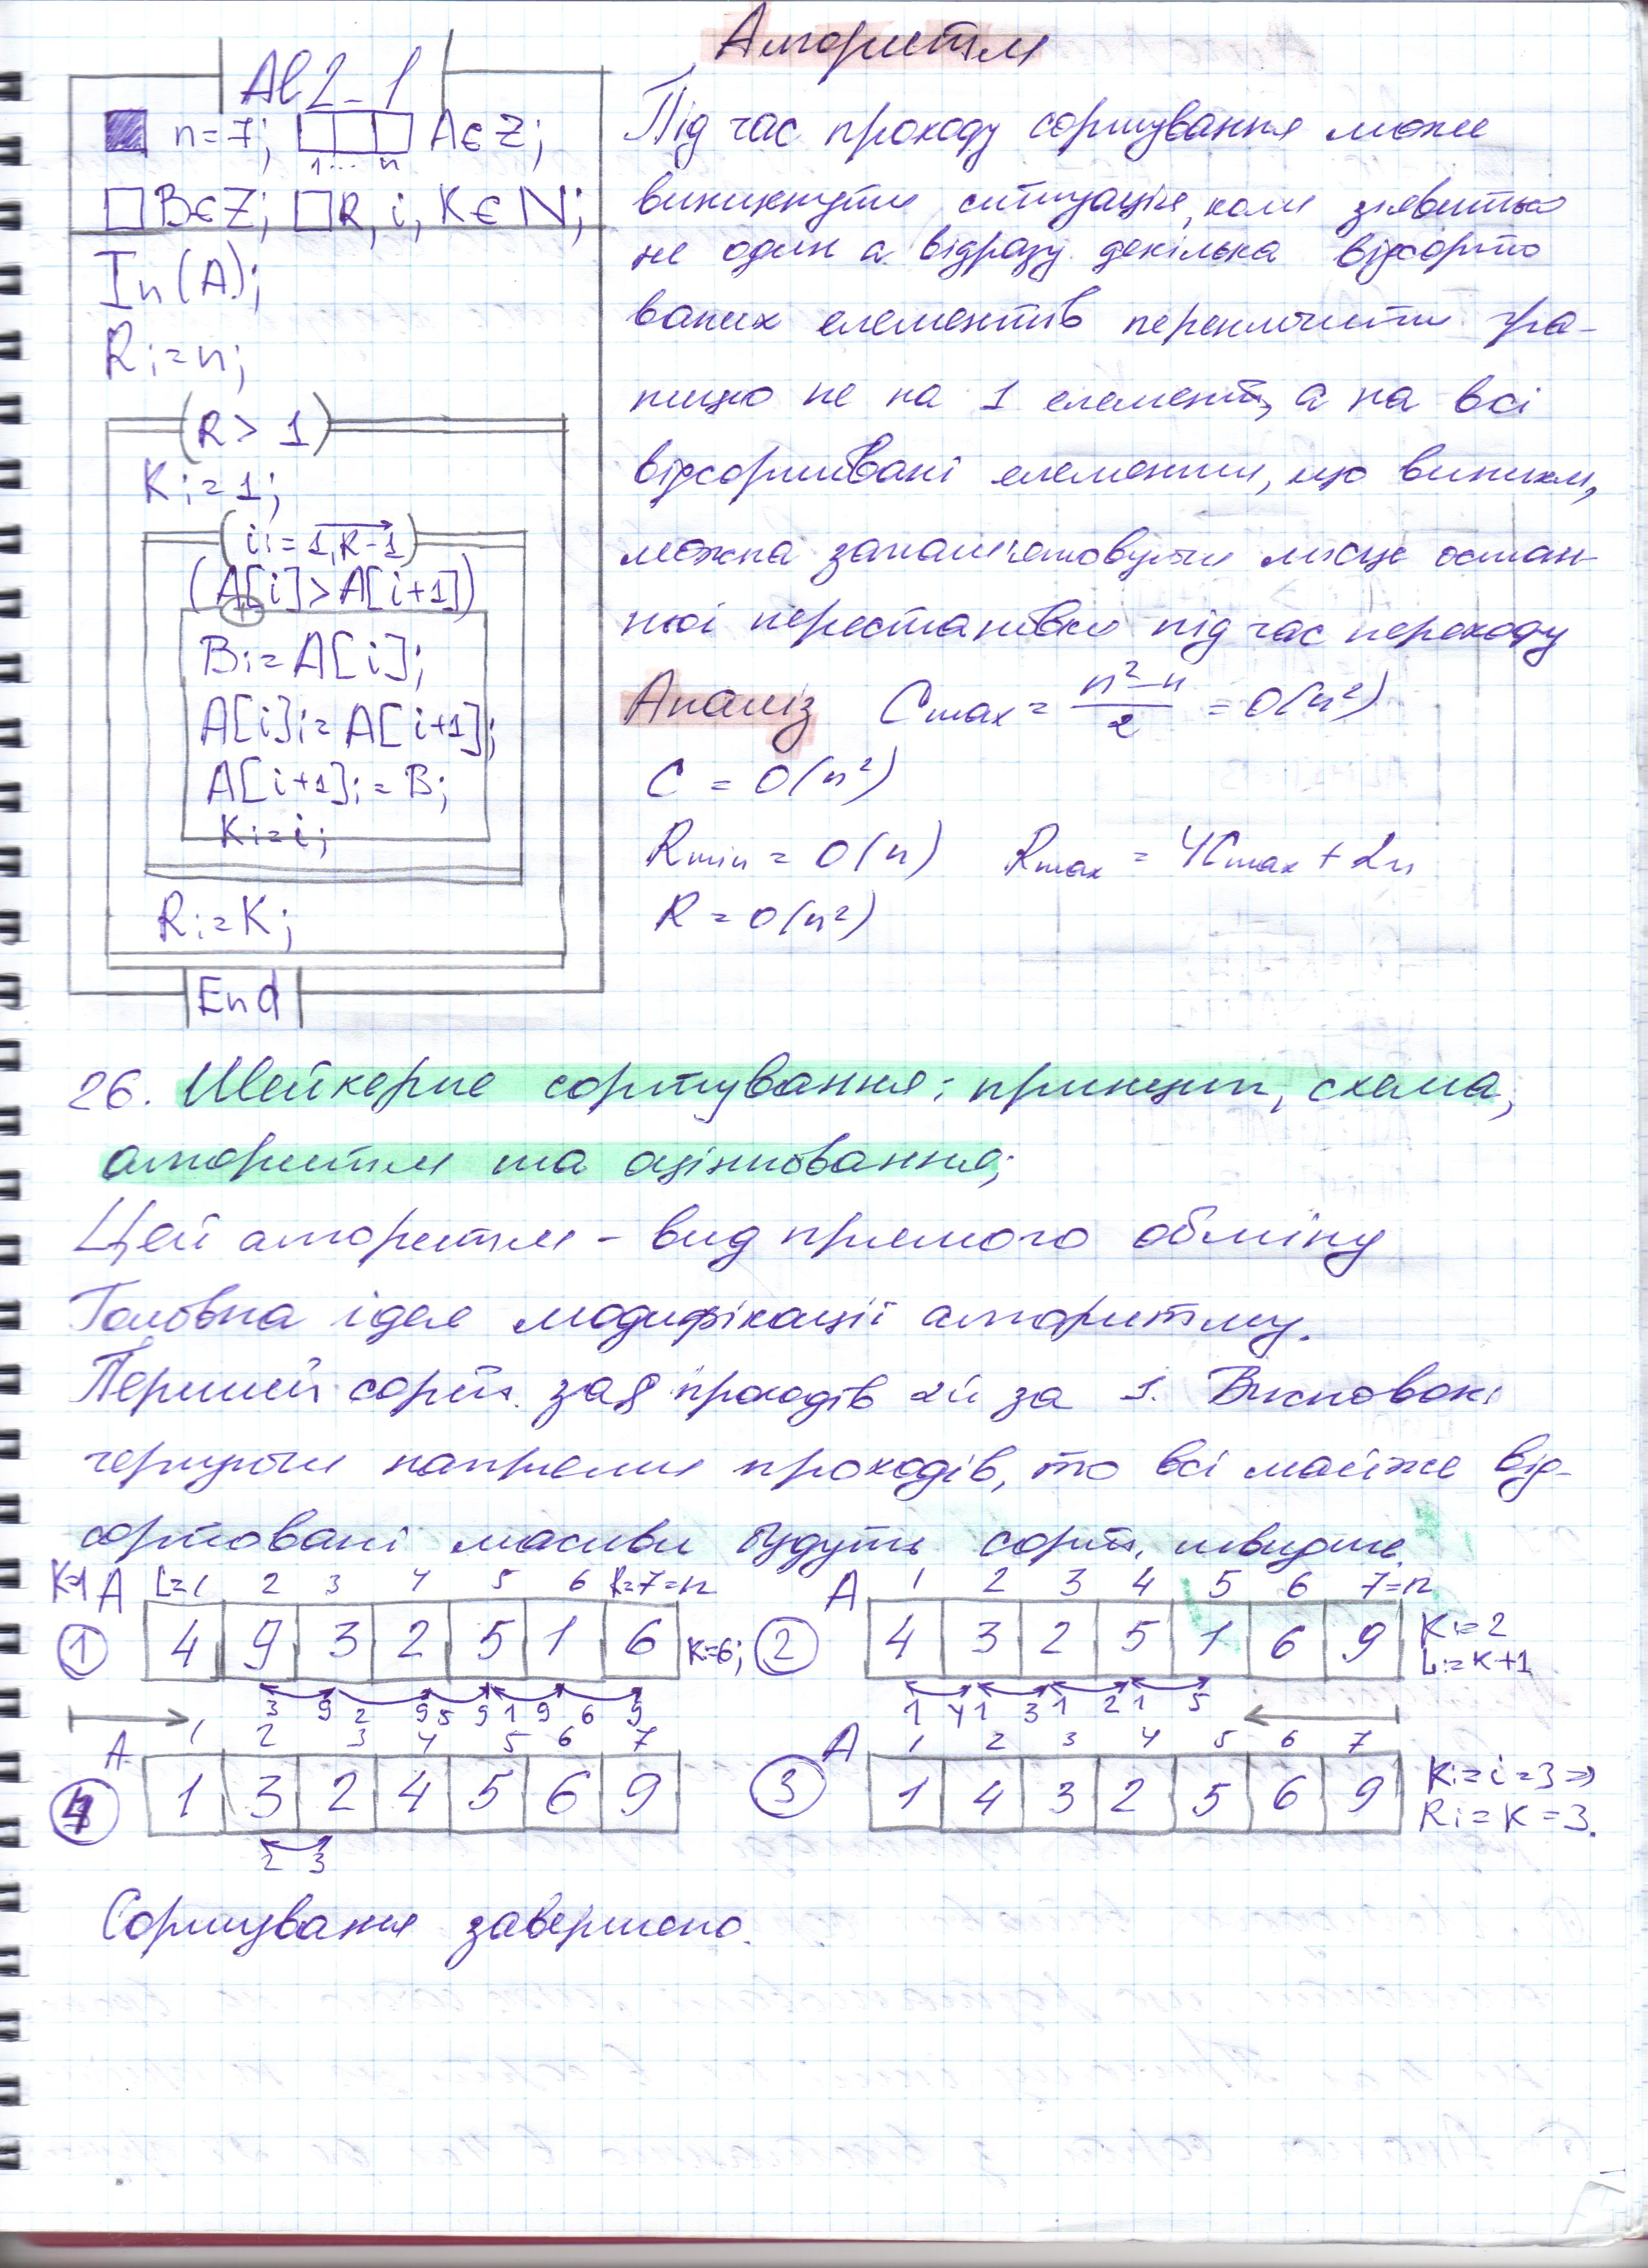 Al2_1
n=7; A∈Z;
1... n
B∈Z; R, i, K∈N;
In(A);
R:=n;
(R>1)
K:=1;
(i:=1,R-1)
(A[i]>A[i+1])
+
B:=A[i];
A[i]:=A[i+1];
A[i+1]:=B;
K:=i;
R:=K;
End
Алгоритм
Під час проходу сортування може
виникнути ситуація, коли зявиться
не один а відразу декілька відсорто
ваних елементів переключити гра-
ницю не на 1 елемент, а на всі
відсортовані елементи, що виникли,
можна запам'ятовуючи місце остан-
ньої перестановки під час переходу
Аналіз Cmax = (n²-n)/2 = O(n²)
C = O(n²)
Rmin = O(n) Rmax = 4Cmax + 2n
R = O(n²)
26. Шейкерне сортування: принцип, схема,
алгоритм та оцінювання;
Цей алгоритм - вид прямого обміну
Головна ідея модифікації алгоритму.
Перший сорт. за 8 проходів 2й за 1. Висновок:
чергуючи напрями проходів, то всі майже від-
сортовані масиви будуть сорт. швидше.
K=1 A L=1 2 3 4 5 6 R=7=n
1 4 9 3 2 5 1 6 K=6;
3 9 2 9 5 9 1 9 6 9
A 1 2 3 4 5 6 7=n
2 4 3 2 5 1 6 9 K:=2
L:=K+1
1 4 1 3 1 2 1 5
A 1 2 3 4 5 6 7
4 1 3 2 4 5 6 9
2 3
A 1 2 3 4 5 6 7
3 1 4 3 2 5 6 9 K:=i=3=>
R:=K=3.
Сортування завершено.